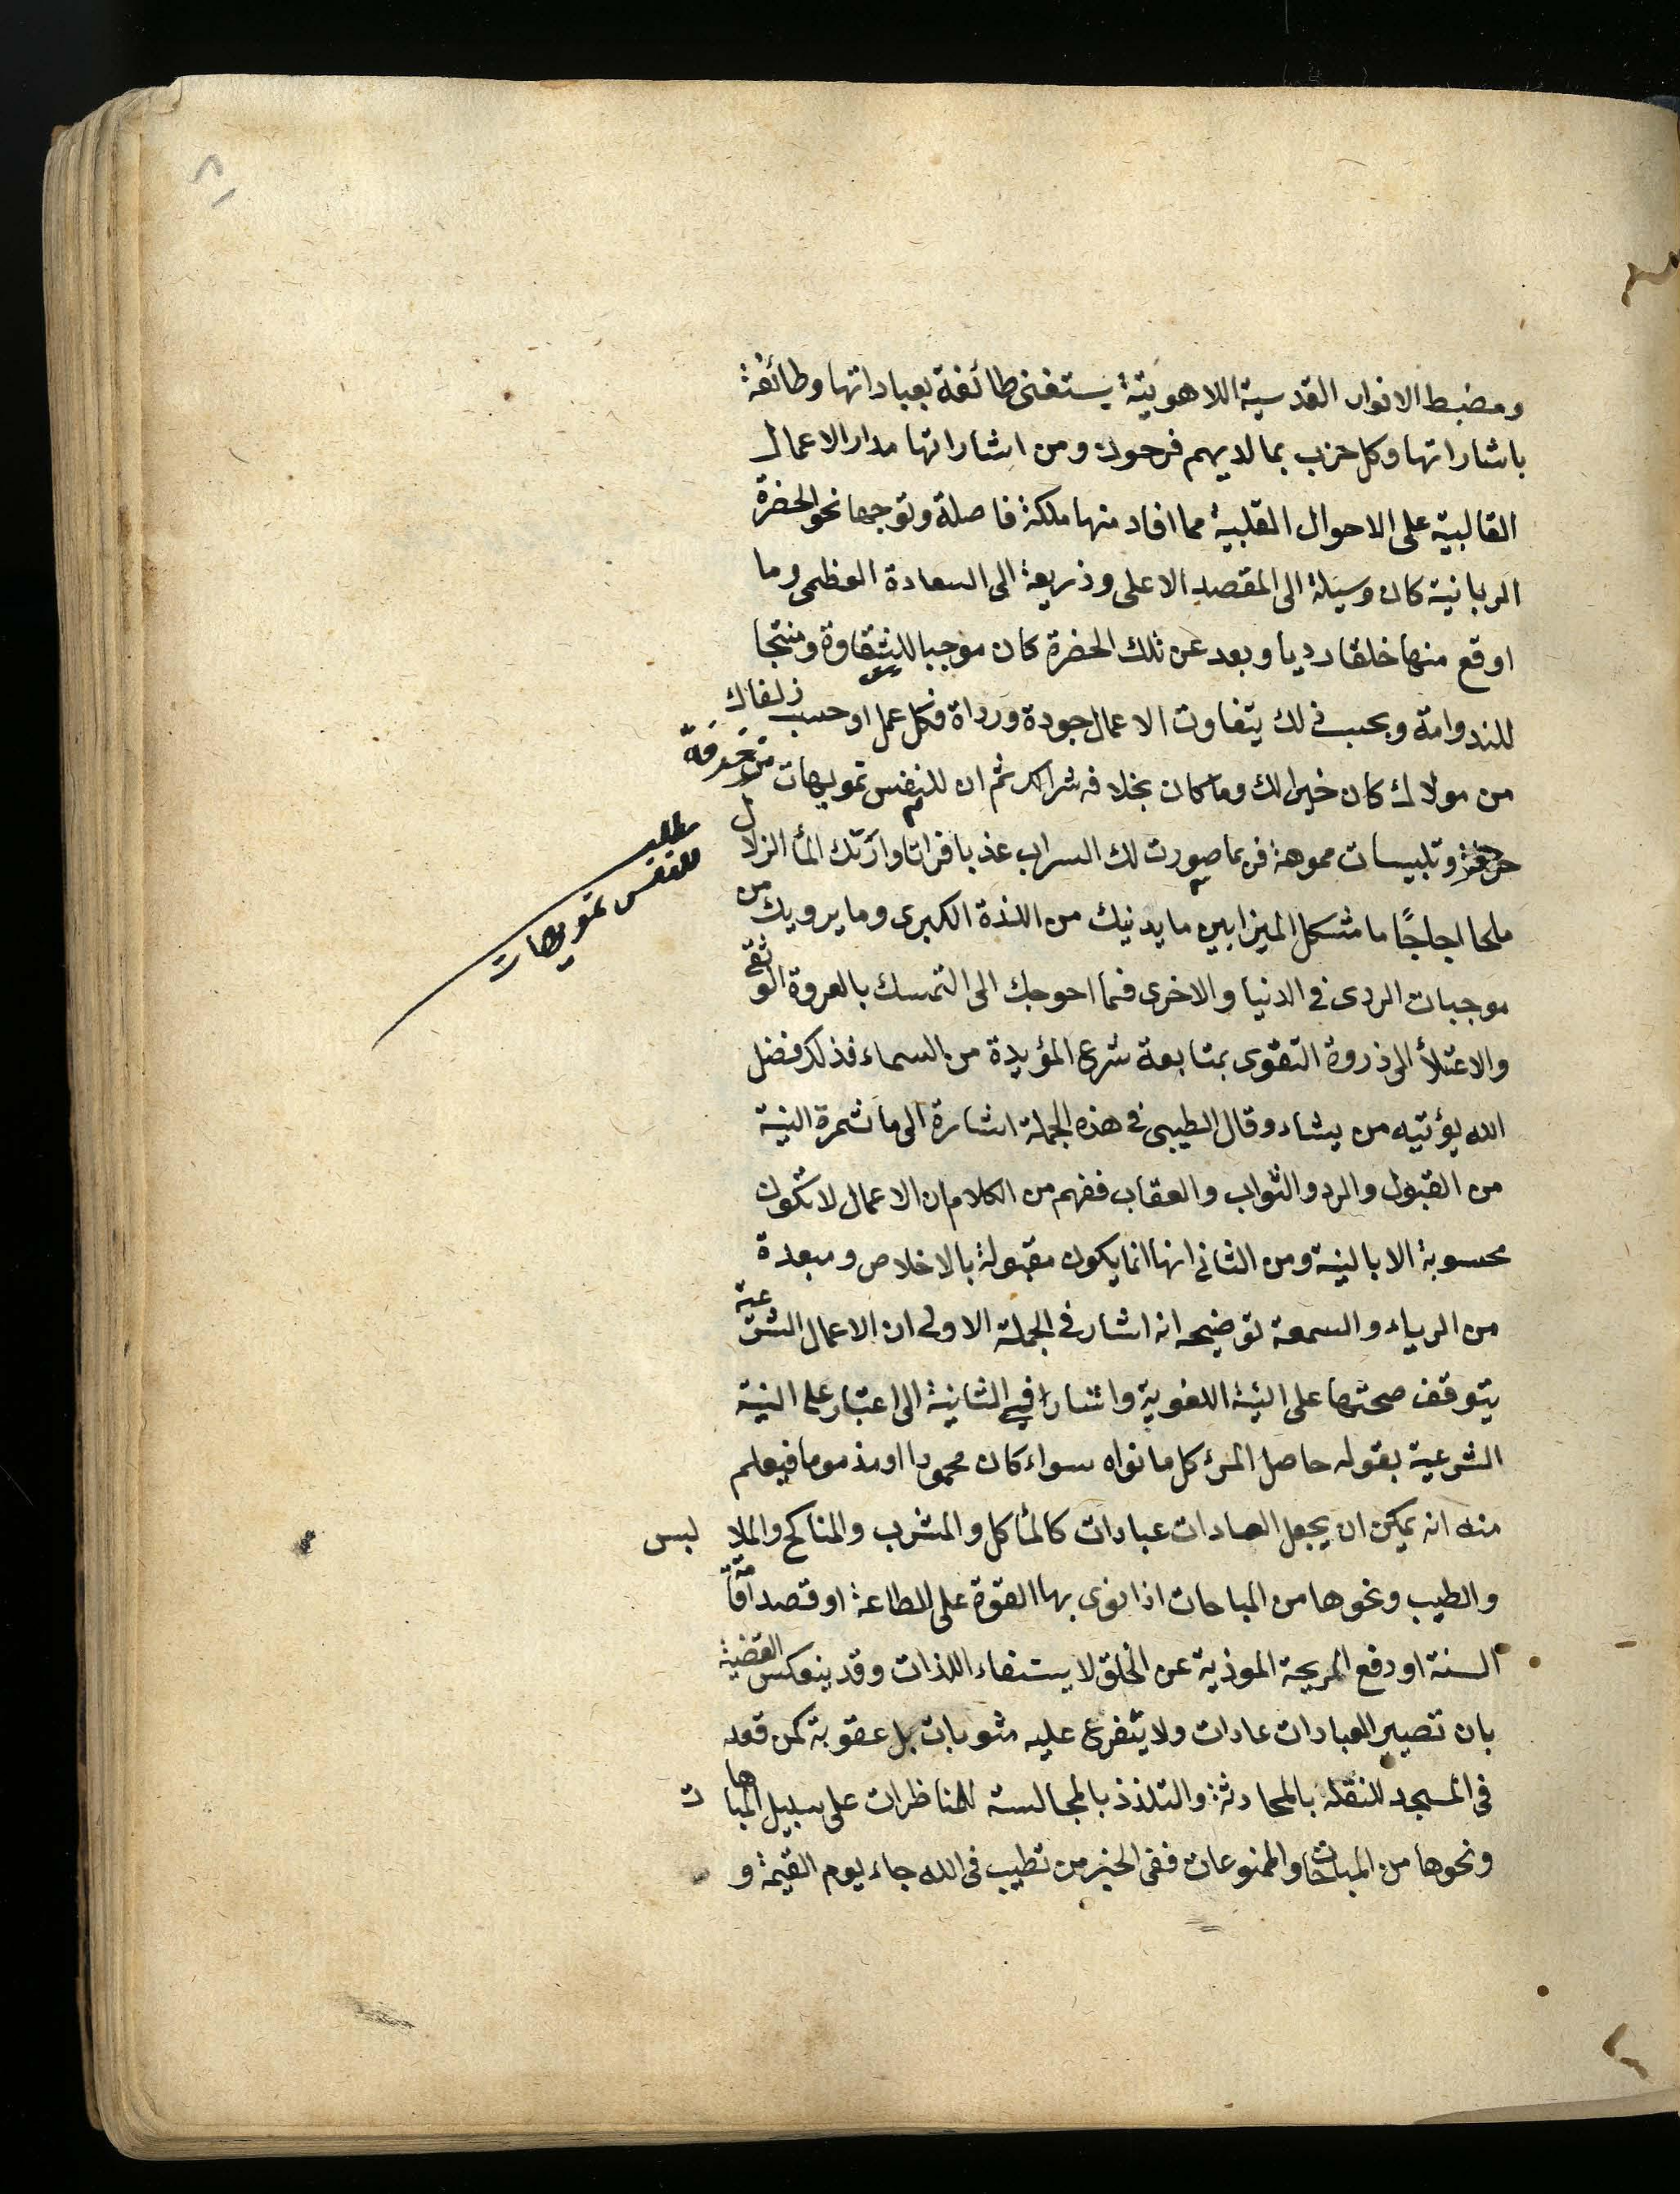 ومضبط الانوار القدسية اللاهوتية يستغنى طائفة بعباداتها وطائفة
باشاراتها وكل حزب بما لديهم فرحون ومن اشاراتها مدار الاعمال
القالبية على الاحوال القلبية مما افاد منها ملكة فاصلة وتوجها نحو الحضرة
الربانية كان وسيلة الى المقصد الاعلى وذريعة الى السعادة العظمى وما
اوقع منها خلقا رديا وبعد عن تلك الحضرة كان موجبا للشقاوة ومنتجا
للندوامة وبحسب ذلك يتفاوت الاعمال جودة ورداة فكل عمل اوحسب زلفاك
من مولاك كان خيرا لك وما كان بخلافه شرا لك ثم ان للنفس تمويهات مزخرفة
وتلبيسات مموهة فربما صورت لك السراب عذبا فراتا وارتك الماء الزلال
ملحا اجاجًا ما مثكل الميزابين ما يدنيك من اللذة الكبرى وما يرويك من
موجبات الردى في الدنيا والاخرى فما احوجك الى التمسك بالعروة الوثقى
والاعتلاء الى ذروة التقوى بمتابعة شرع المؤيدة من السماء فذلك فضل
الله يؤتيه من يشاء وقال الطيبى في هذه الجملة اشارة الى ما تثمرة النية
من القبول والرد والثواب والعقاب ففهم من الكلام ان الاعمال لا تكون
محسوبة الا بالنية ومن الثانى انها انما يكون مقبولة بالاخلاص ومبعدة
من الرياء والسمعة توضيحه انه اشار في الجملة الاولى ان الاعمال الشرعية
يتوقف صحتها على النية اللغوية واشار في الثانية الى اعتبار على النية
الشرعية بقوله حاصل المرء كل ما نواه سواء كان محمودا او مذموما فيعلم
منه انه يمكن ان يجعل العادات عبادات كالمأكل والمشرب والمناكح والملا بس
والطيب ونحوها من المباحات اذا نوى بها القوة على الطاعة او قصد اقامة
السنة او دفع الريحة الموذية عن الخلق لا يستفاء اللذات وقد ينعكس القضية
بان تصير العبادات عادات ولا يتفرع عليه مثوبات بل عقوبة كمن قعد
في المسجد للنقله بالمحادثة والتلذذ بالمجالسة للمناظرات على سبيل المباهات
ونحوها من المباحات والممنوعات ففى الخبر من تطيب في الله جاء يوم القيمة و
مطلب
للنفس تمويهات
٨